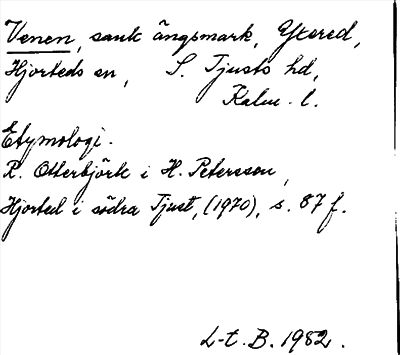 Venen, sank ängsmark, Ytered,
Hjorteds sn, S. Tjusts hd,
Kalm. l.
Etymologi.
R. Otterbjörk i H. Petersson,
Hjorted i södra Tjust, (1970), s. 87 f.
L-t. B. 1982.